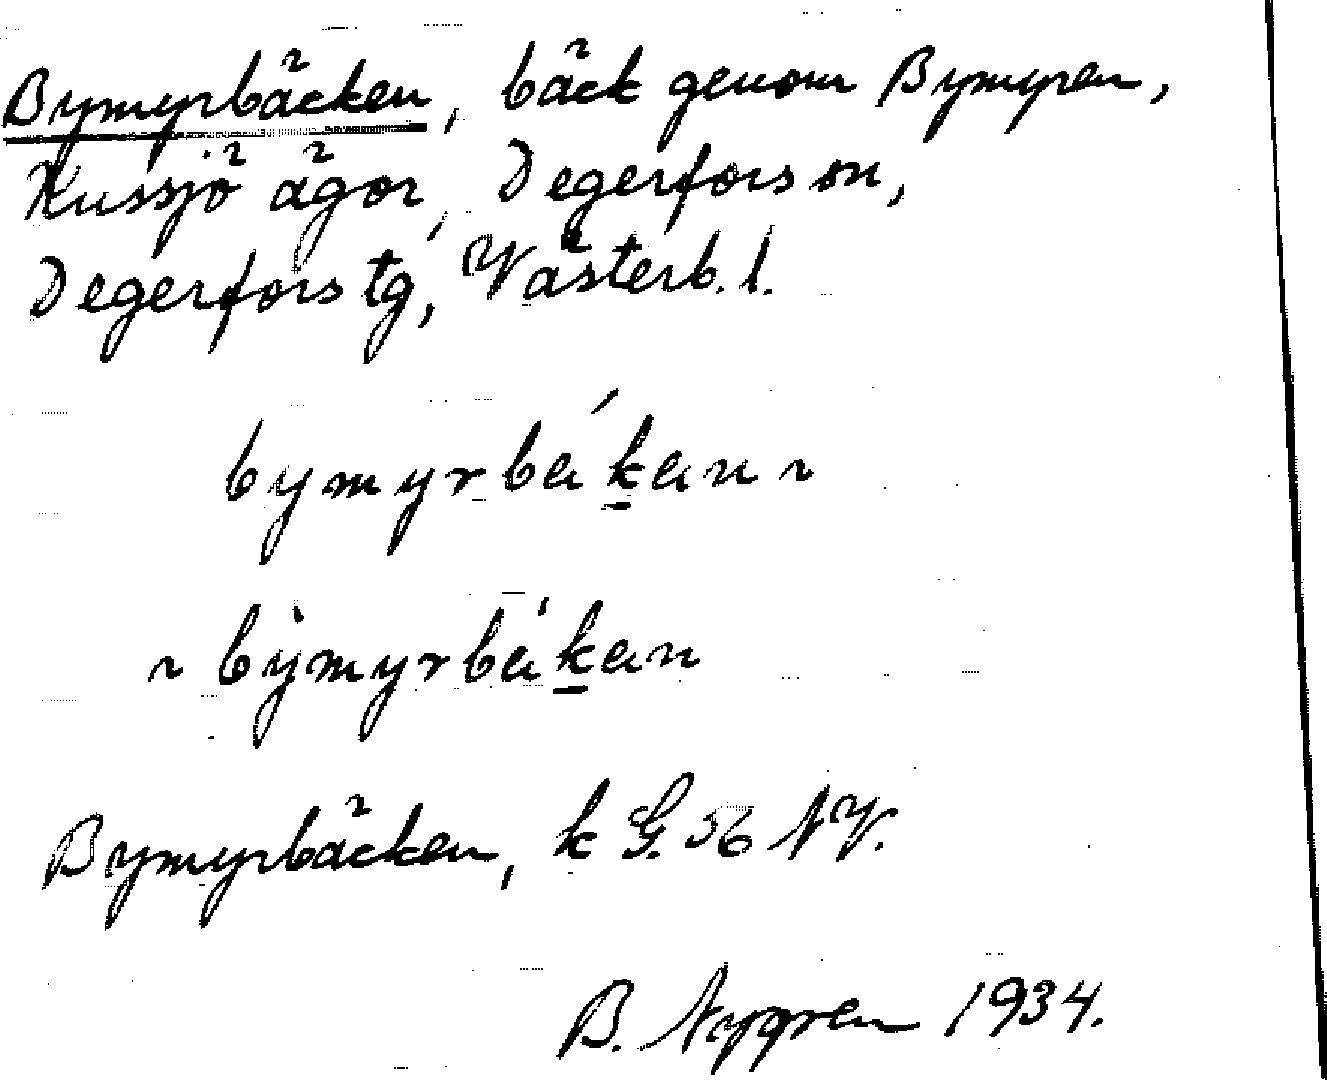 Bymyrbäcken, bäck genom Bymyren,
Kussjö ägor, Degerfors sn,
Degerfors tg, Västerb. l.
bymyrbäkän
bỳmyrbäkän
Bymyrbäcken, k G. 56 NV.
B. Nygren 1934.